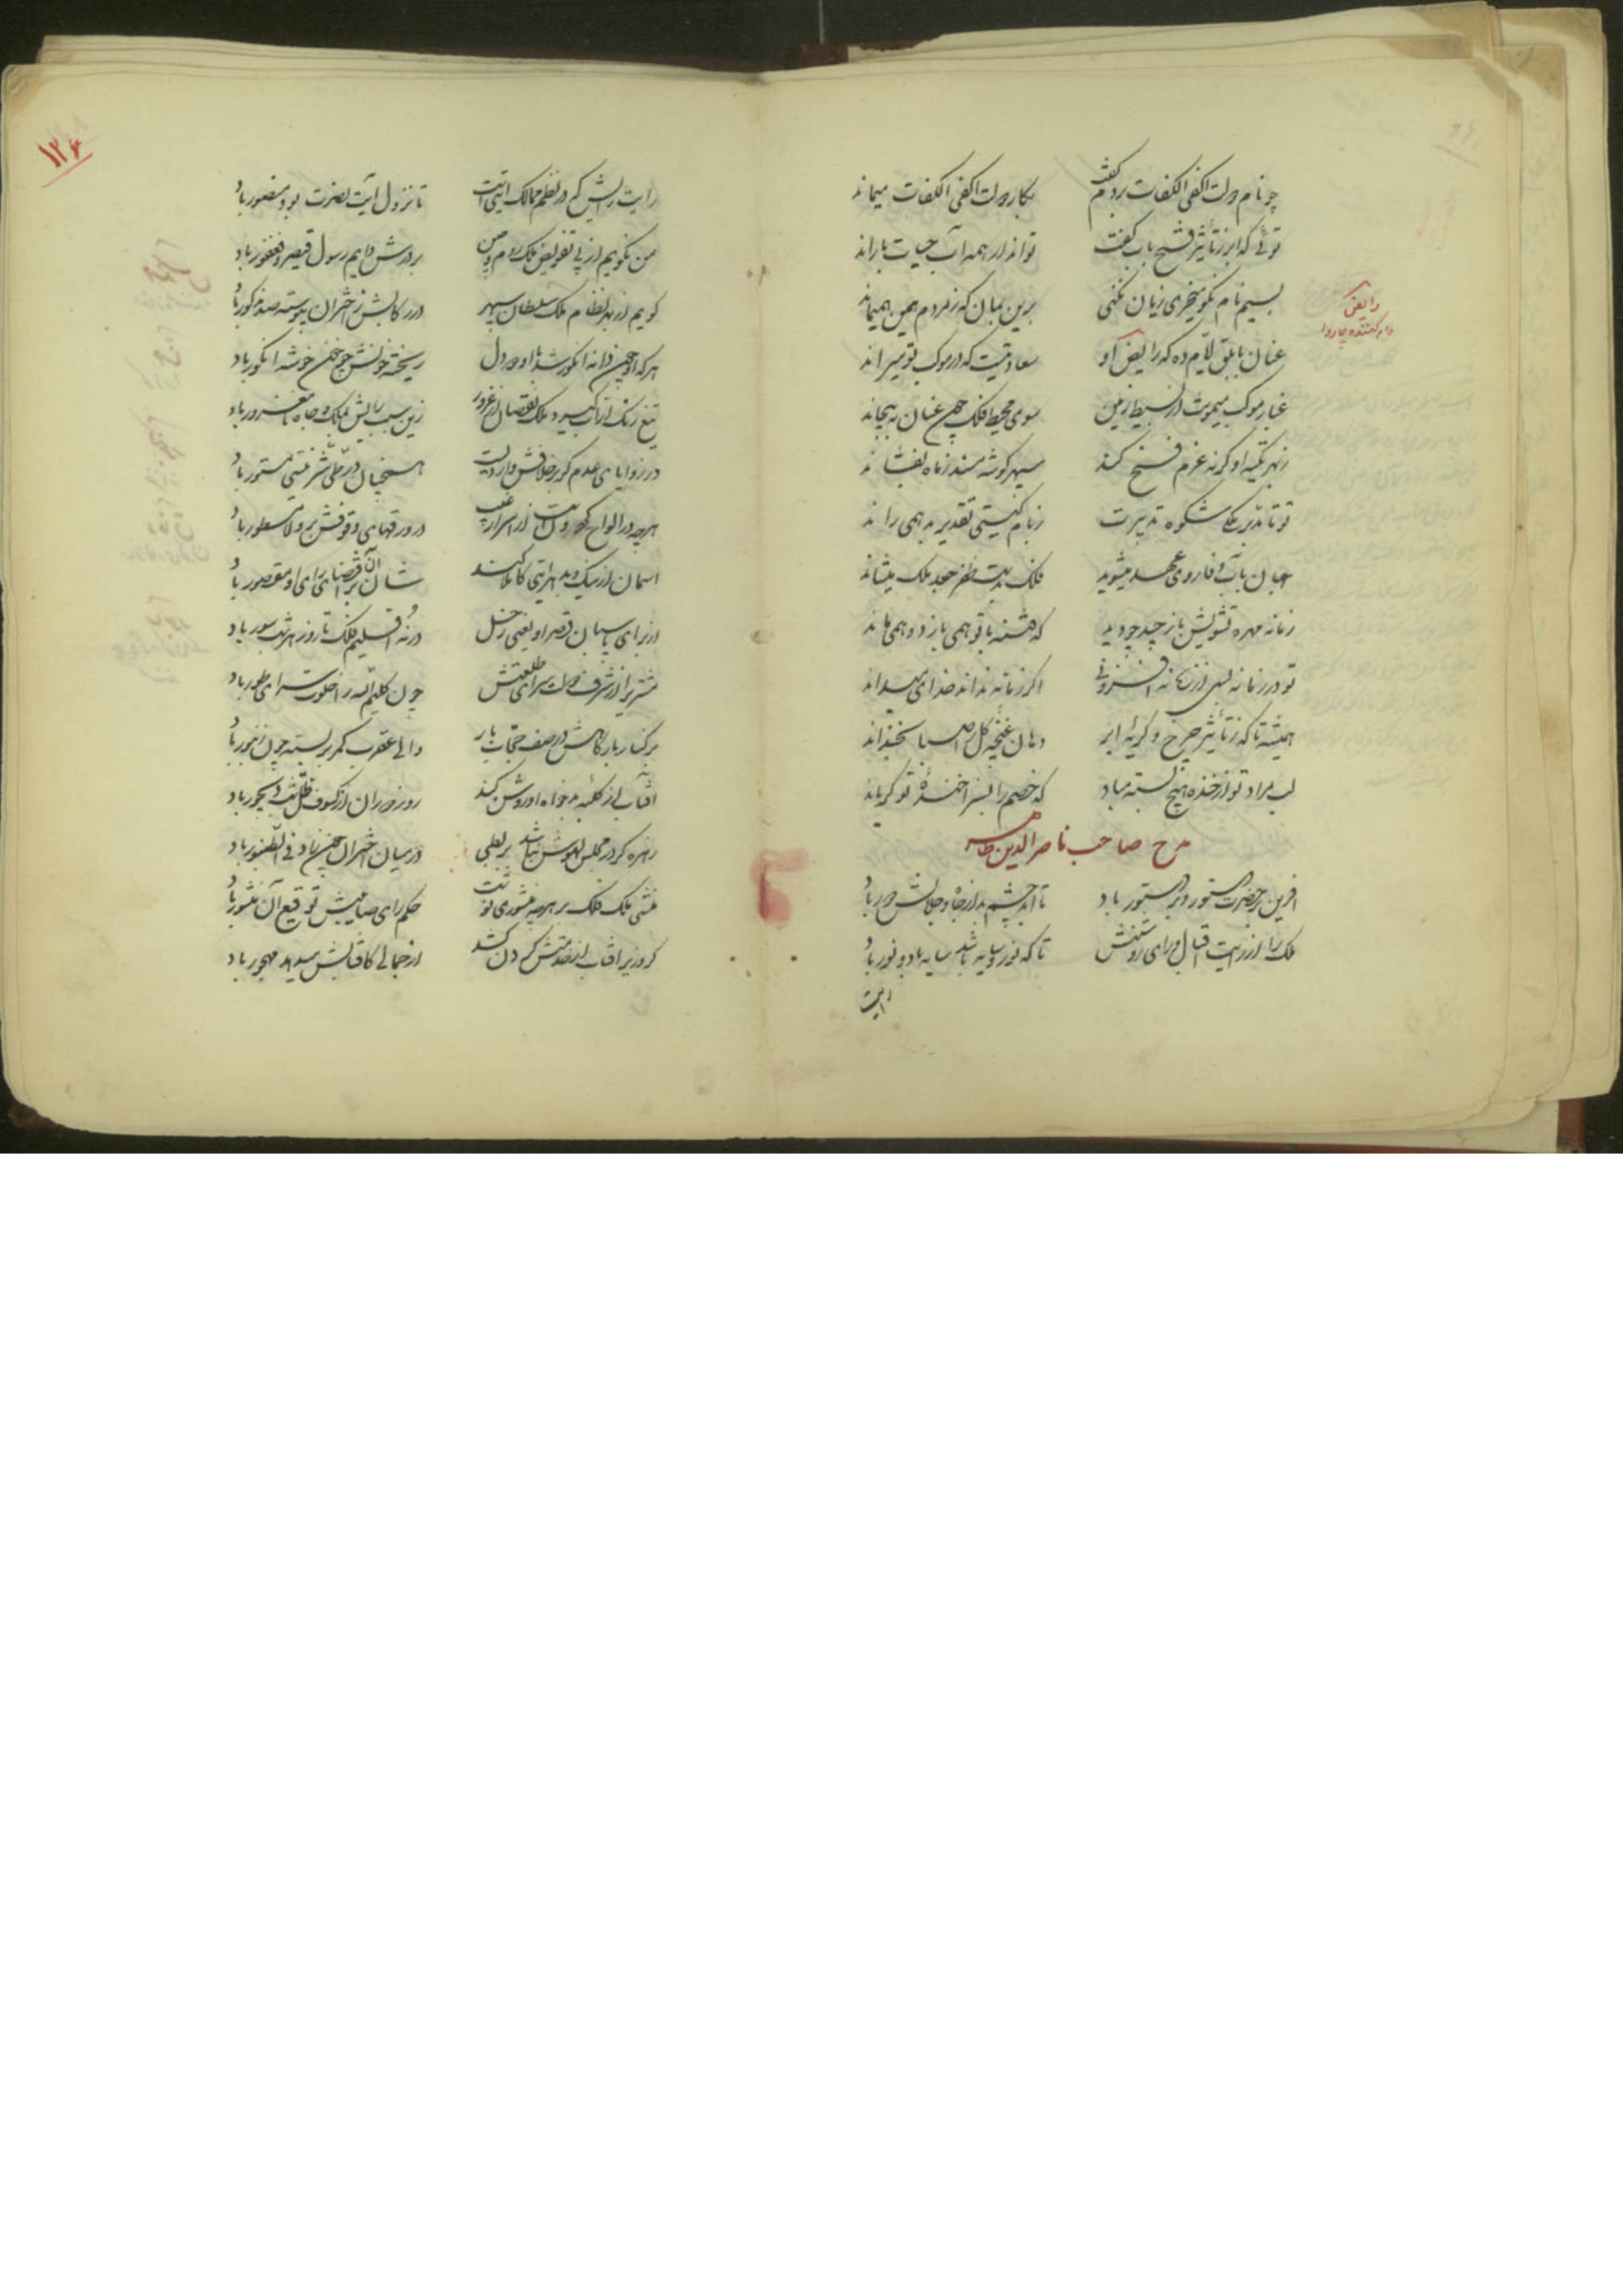 چو نام دولت اکفی الکفات بردم گفت بکار دولت اکفی الکفات میماند
توئی که ابر ز تأثیر فتح باب کفت تواند ار همه آب حیات باراند
بسیم نام نکو میخری زیان نکنی برین بمان که ز مردم همین همیماند
رایض
رام کننده چاروا
عنان بابلق ایام ده که رایض او سعادتیست که در موکب تو میراند
غبار موکب میمونت از بسیط زمین سوی محیط فلک چون عنان بپیچاند
ز بهر تکیه او گرنه عزم فسخ کند سپهر گوشه مسند ز ماه بفشاند
تو تا مدبر ملکی شکوه تدبیرت زمام گیتی تقدیر بد همی راند
جهان بآب وفا روی عهد میشوید فلک بدست ظفر جعد ملک میشاند
زمانه مهره تشویش باز چید چو دید که فتنه با تو همی بازد و همی ماند
تو در زمانه بسی از زمانه افزونی اگر زمانه نداند خدای میداند
همیشه تا که ز تأثیر چرخ و گریه ابر دهان غنچه گل را صبا بخنداند
لب مراد تو از خنده هیچ بسته مباد که خصم را بسزا خنده تو گریاند
مدح صاحب ناصر الدین طاهر
آفرین بر حضرت دستور و بر دستور باد تا ابد چشم بد از جاه و جلالش دور باد
ملک را از رایت اقبال و رای روشنش تا که نور و سایه باشد سایه باد و نور باد
رایت
۱۲۴
رایت رایش که در نظم ممالک آیتیست تا نزول آیت نصرت بود منصور باد
من نگویم از پی تفویض ملک روم و چین بر درش دایم رسول قیصر و فغفور باد
گویم اندر بند نظام ملک سلطان سپهر در رکابش ز اختران پیوسته صد مذکور باد
هر که او چون دانه انگور شد با او دو دل ریخته خونش چو خون خوشه انگور باد
تیغ رنگ از آب گیرد ملک نقصان از غرور زین سبب رایش بملک و جاه نامغرور باد
در زوایای عدم گر بر خلافش واردیست همچنان در طی شرّ نیستی مستور باد
هرچه در الواح گردونست از اسرار غیب در ورقهای وقوفش بر ولا مسطور باد
آسمان از نیک و بد هر آیتی کاملا کند شان آن بر اقتضای رای او مقصور باد
از برای پاسبان قصر او یعنی زحل در نه اقلیم فلک تا روز هر شب سور باد
مشتری را از شرف دولت سرای طلعتش چون کلیم الله را خلوت سرای طور باد
بر کنار بارگاهش در صف حجّاب بار والی عقرب کمر بر بسته چون زنبور باد
آفتاب ار از کلبه بدخواه او روشن کند روز دوران از کسوف ظلّ شب دیجور باد
زهره گر در مجلس لهوش نباشد بربطی در میان اختران چون زاد فی الطنبور باد
منشی ملک فلک بر هرچه منشوری نوشت حکم رای صایبش توقیع آن منشور باد
گر وزیر آفتاب از خدمتش گردن کشد از جمالی کافتابش میدهد مهجور باد